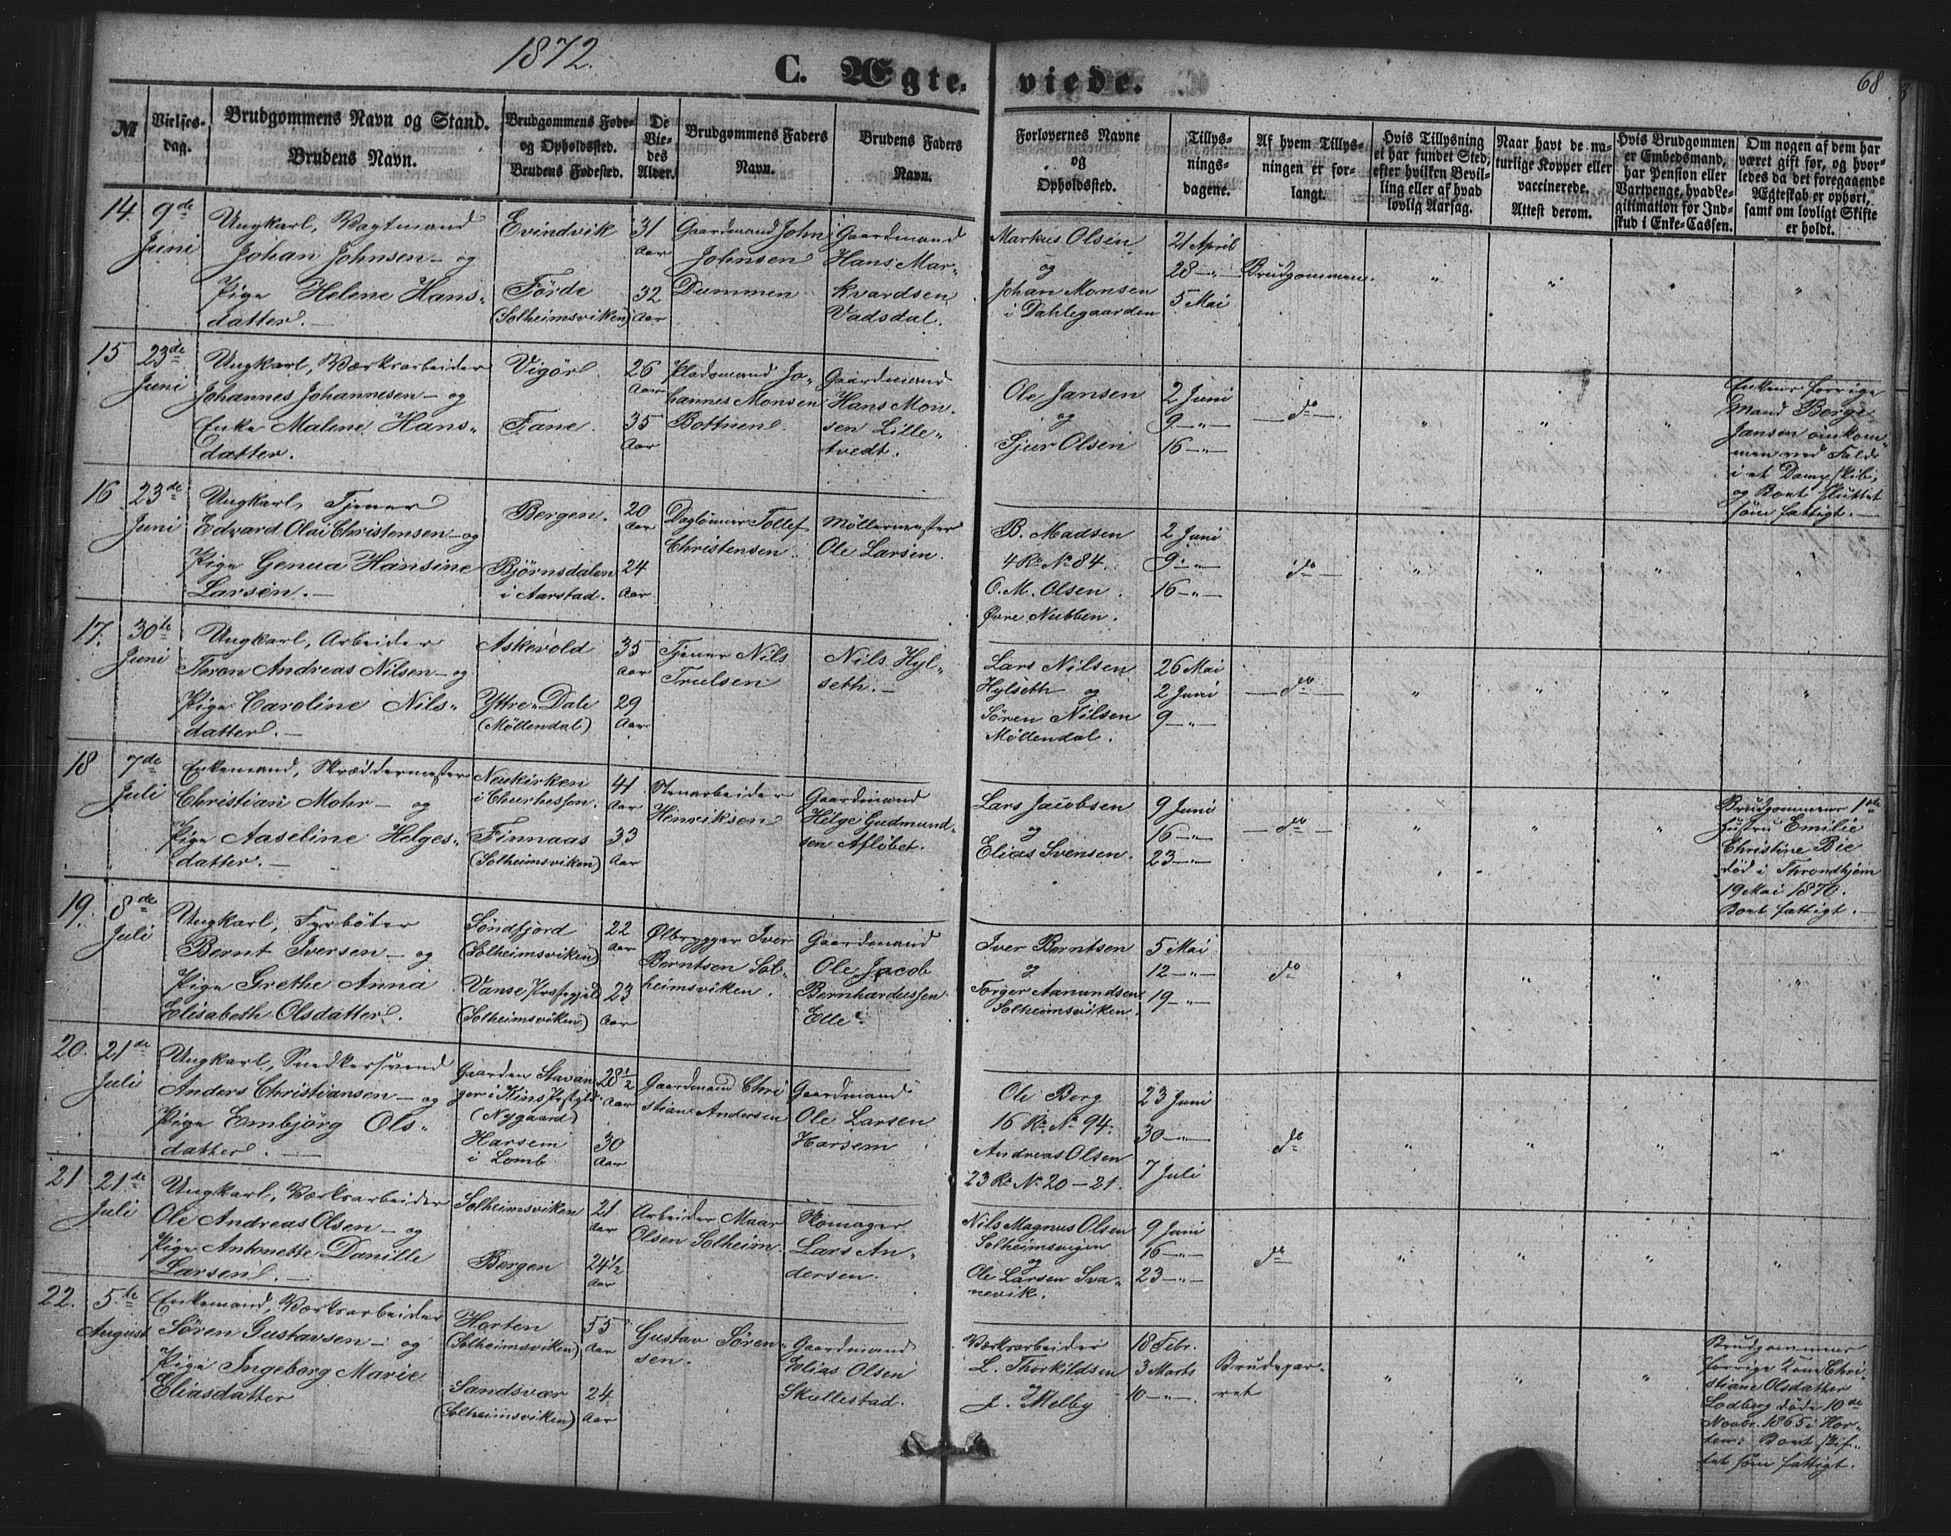 1872.
C. Ægte-viede.
68
№
Vielses-dag.
Brudgommens Navn og Stand.
Brudens Navn.
Brudgommens Føde- og Opholdssted.
Brudens Fødested.
De Viedes Alder.
Brudgommens Faders Navn.
Brudens Faders Navn.
Forlovernes Navne og Opholdssted.
Tillysningsdagene.
Af hvem Tillysningen er forlangt.
Hvis Tillysning ei har fundet Sted, efter hvilken Bevilling eller af hvad lovlig Aarsag.
Naar havt de naturlige Kopper eller vaccinerede.
Attest derom.
Hvis Brudgommen er Embedsmand, har Pension eller Vartpenge, hvad Legitimation for Indskud i Enke-Cassen.
Om nogen af dem har været gift før, og hvorledes da det foregaaende Ægteskab er ophørt, samt om lovligt Skifte er holdt.
14. 9de Juni
Ungkarl, Vagtmand
Johan Johnsen – og
Pige Helene Hans-
datter. –
Evindvik
Førde
(Solheimsviken)
31 Aar
32 Aar
Gaardmand John
Johnsen
Dummen
Gaardmand
Hans Mar-
kvardsen
Vadsdal.
Markus Olsen
og
Johan Monsen
i Dahlegaarden
21 April
28 – " –
5 Mai
Brudgommen.
15 23de Juni
Ungkarl, Værksarbeider
Johannes Johannesen – og
Enke Malene Hans-
datter.
Vigør
Fane.
26 Aar
35 Aar
Pladsmand Jo-
hannes Monsen
Bottnen.
Gaardmand
Hans Mon-
sen Lille-
tvedt.
Ole Jansen
og
Sjur Olsen
2 Juni
9 – " –
16 – " –
– do –
Enkens forrige
Mand Berge
Jansen omkom-
men ved Fald
i et Dampskib,
og Boet sluttet
som fattigt. –
16 23de Juni
Ungkarl, Tjener
Edvard Olai Christensen – og
Pige Genua Hansine
Larsen. –
Bergen.
Bjørnsdalen
i Aarstad.
20 Aar
24 Aar
Daglønner Tollef
Christensen.
Møllermester
Ole Larsen.
B. Madsen
4 R. No 84.
O. M. Olsen.
Øvre Nubben.
2 Juni
9 – " –
16 – " –
do –
17. 30te Juni
Ungkarl, Arbeider
Thron Andreas Nilsen – og
Pige Caroline Nils-
datter. –
Askevold
Yttre-Dale
(Møllendal)
35 Aar
29 Aar
Tjener Nils
Trulsen
Nils Hyl-
seth. –
Lars Nilsen
Hylseth og
Søren Nilsen
Møllendal.
26 Mai
2 Juni
9 – " –
– do –
18 7de Juli
Enkemand, Skræddermester
Christian Mohr – og
Pige Aaseline Helges-
datter. –
Neukirken
i Churhessen.
Finnaas
(Solheimsviken)
41 Aar
33 Aar
Stenarbeider
Henriksen
Gaardmand
Helge Gudmund-
sen Afløbet.
Lars Jacobsen
og
Elias Svensen.
9 Juni
16 – " –
23 – " –
– do –
Brudgommens 1ste
Hustru Emilie
Christine Bie
død i Throndhjem
19 Mai 1870.
Boet fattigt. –
19. 8de Juli
Ungkarl, Fyrbøter
Bernt Iversen – og
Pige Grethe Anna
Elisabeth Olsdatter.
Søndfjord
(Solheimsviken)
Vanse Præstegjeld
(Solheimsviken)
22 Aar
23 Aar
Ølbrygger Iver
Berntsen Sol-
heimsviken.
Gaardmand
Ole Jacob
Bernhardussen
Elle.
Iver Berntsen
og
Torger Aanundsen
Solheimsviken.
5 Mai
12 – " –
19 – " –
do
20. 21de Juli
Ungkarl, Snedkersvend
Anders Christiansen – og
Pige Embjørg Ols-
datter. –
Gaarden Stavan
ger i Kins Prstgjld.
(Nygaard)
Harsem
i Lomb
28 1/2 Aar
30 Aar
Gaardmand Chri
stian Andersen
Gaardmand
Ole Larsen
Harsem
Ole Berg
16 R. No 94.
Andreas Olsen
23 R. No 20 – 21.
23 Juni
30 – " –
7 Juli
do
21 21de Juli
Ungkarl, Værksarbeider
Ole Andreas Olsen – og
Pige Antonette Danille
Larsen. –
Solheimsviken
Bergen
21 Aar
24 1/2 Aar
Arbeider Maar
Olsen Solheim.
Remager
Lars An-
dersen.
Nils Magnus Olsen
Solheimsvigen
og
Ole Larsen Sva-
nevik.
9 Juni
16 – " –
23 – " –
do
22. 5te August
Enkemand, Værksarbeider
Søren Gustavsen – og
Pige Ingeborg Marie
Eliasdatter
Horten
(Solheimsviken)
Sandsvær
(Solheimsviken)
55 Aar
24 Aar
Gustav Søren-
sen.
Gaardmand
Elias Olsen
Skullestad.
Værksarbeider
L. Thorkildsen
og
J. Melby
18 Febr.
3 Marts
10 – " –
Brudepar-
ret
Brudgommens
forrige Kone Chri-
stiane Olsdatter
Lodberg døde 10de
Novbr. 1865 i Hor-
ten. Boet skif-
tet som fattigt.